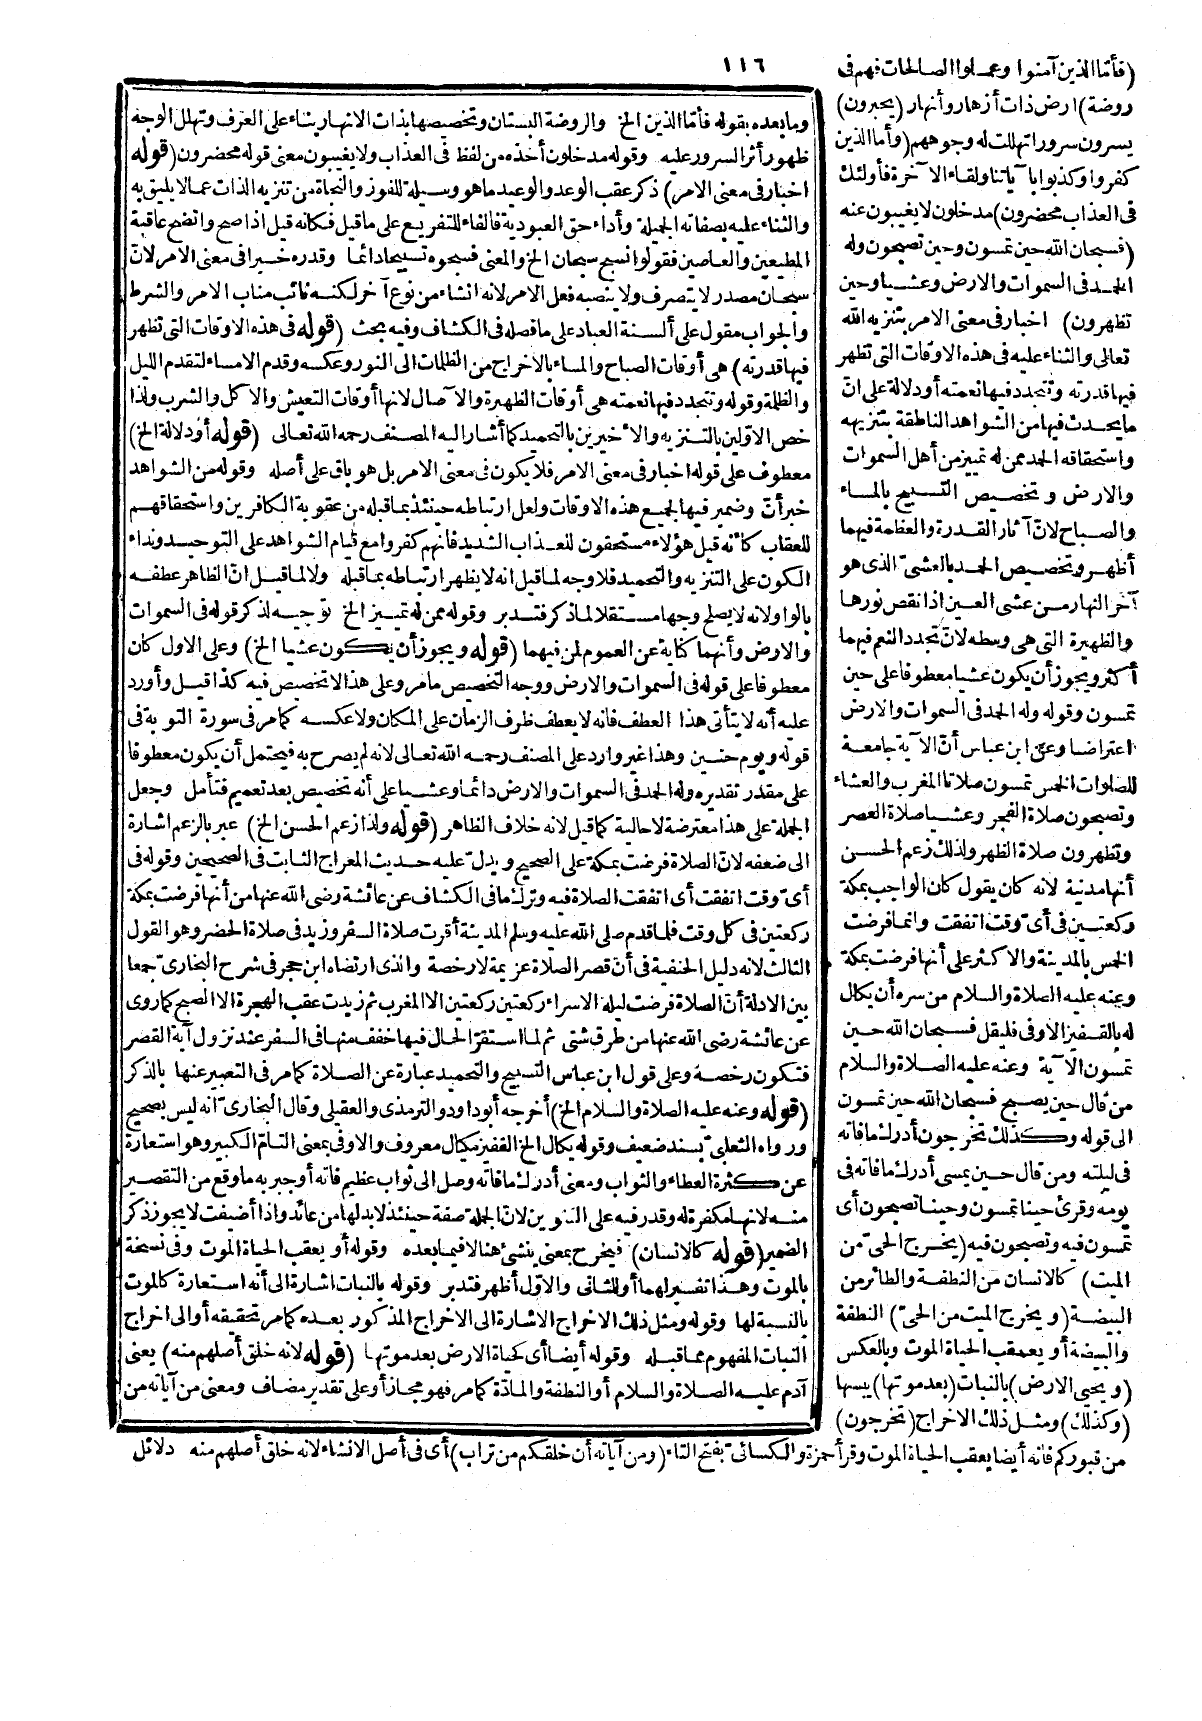 ١١٦
(فأمّا الذين آمنوا وعملوا الصالحات فهم فى
روضة) ارض ذات أزهار وأنهار (يحبرون)
يسرون سرورا تهللت له وجوههم (وأما الذين
كفروا وكذبوا بآياتنا ولقاء الآخرة فأولئك
فى العذاب محضرون) مدخلون لا يغيبون عنه
(فسبحان الله حين تمسون وحين تصبحون وله
الحمد فى السموات والارض وعشيا وحين
تظهرون) اخبار فى معنى الامر بتنزيه الله
تعالى والثناء عليه فى هذه الاوقات التى تظهر
فيها قدرته وتتجدد فيها نعمته أو دلالة على انّ
ما يحدث فيها من الشواهد الناطقة بتنزيهه
واستحقاقه الحمد ممن له تمييز من أهل السموات
والارض وتخصيص التسبيح بالمساء
والصباح لانّ آثار القدرة والعظمة فيهما
أظهر وتخصيص الحمد بالعشىّ الذى هو
آخر النهار من عشى العين اذا نقص نورها
والظهيرة التى هى وسطه لانّ تجدد النعم فيهما
أكثر ويجوز أن يكون عشيا معطوفا على حين
تمسون وقوله وله الحمد فى السموات والارض
اعتراضا وعن ابن عباس أنّ الآية جامعة
للصلوات الخمس تمسون صلاتا المغرب والعشاء
وتصبحون صلاة الفجر وعشيا صلاة العصر
وتظهرون صلاة الظهر ولذلك زعم الحسن
أنها مدنية لانه كان يقول كان الواجب بمكة
ركعتين فى أىّ وقت اتفقت وانما فرضت
الخمس بالمدينة والاكثر على أنها فرضت بمكة
وعنه عليه الصلاة والسلام من سره أن يكال
له بالقفيز الاوفى فليقل فسبحان الله حين
تمسون الآية وعنه عليه الصلاة والسلام
من قال حين يصبح فسبحان الله حين تمسون
الى قوله وكذلك تخرجون أدرك ما فاته
فى ليلته ومن قال حين يمسى أدرك ما فاته فى
يومه وقرئ حينا تمسون وحينا تصبحون أى
تمسون فيه وتصبحون فيه (يخرج الحىّ من
الميت) كالانسان من النطفة والطائر من
البيضة (ويخرج الميت من الحىّ) النطفة
والبيضة أو يعقب الحياة الموت وبالعكس
(ويحيى الارض) بالنبات (بعد موتها) يبسها
(وكذلك) ومثل ذلك الاخراج (تخرجون)
من قبوركم فانه أيضا يعقب الحياة الموت وقرأ حمزة والكسائىّ بفتح التاء (ومن آياته أن خلقكم من تراب) أى فى أصل الانشاء لانه خلق أصلهم منه
وما بعده بقوله فأمّا الذين الخ والروضة البستان وتخصيصها بذات الانهار بناء على العرف وتهلل الوجه
ظهور أثر السرور عليه وقوله مدخلون أخذه من لفظ فى العذاب ولا يغيبون معنى قوله محضرون (قوله
اخبار فى معنى الامر) ذكر عقب الوعد والوعيد ما هو وسيلة للفوز والنجاة من تنزيه الذات عما لا يليق به
والثناء عليه بصفاته الجميلة وأداء حق العبودية فالفاء للتفريع على ما قبل فكأنه قيل اذا صح واتضح عاقبة
المطيعين والعاصين فقولوا نسبح سبحان الخ والمعنى فسبحوه تسبيحا دائما وقدره خبرا فى معنى الامر لانّ
سبحان مصدر لا يتصرف ولا ينصبه فعل الامر لانه انشاء من نوع آخر لكنه نائب مناب الامر والشرط
والجواب مقول على ألسنة العباد على ما فصله فى الكشاف وفيه بحث (قوله فى هذه الاوقات التى تظهر
فيها قدرته) هى أوقات الصباح والمساء بالاخراج من الظلمات الى النور وعكسه وقدم الامساء لتقدم الليل
والظلمة وقوله وتتجدد فيها نعمته هى أوقات الظهيرة والآصال لانها أوقات التعيش والاكل والشرب ولذا
خص الاوّلين بالتنزيه والأخيرين بالتحميد كما أشار اليه المصنف رحمه الله تعالى (قوله أو دلالة الخ)
معطوف على قوله اخبار فى معنى الامر فلا يكون فى معنى الامر بل هو باق على أصله وقوله من الشواهد
خبر أنّ وضمير فيها لجميع هذه الاوقات ولعل ارتباطه حينئذ بما قبله من عقوبة الكافرين واستحقاقهم
للعقاب كأنه قيل هؤلاء مستحقون للعذاب الشديد فانهم كفروا مع قيام الشواهد على التوحيد ونداء
الكون على التنزيه والتحميد فلا وجه لما قيل انه لا يظهر ارتباطه بما قبله ولا لما قيل انّ الظاهر عطفه
بالواو لانه لا يصلح وجها مستقلا لما ذكر فتدبر وقوله ممن له تمييز الخ توجيه لذكر قوله فى السموات
والارض وأنهما كناية عن العموم لمن فيهما (قوله ويجوز أن يكون عشيا الخ) وعلى الاول كان
معطوفا على قوله فى السموات والارض ووجه التخصيص ما مر وعلى هذا لا تخصيص فيه كذا قيل وأورد
عليه أنه لا يتأتى هذا العطف فانه لا يعطف ظرف الزمان على المكان ولا عكسه كما مر فى سورة التوبة فى
قوله ويوم حنين وهذا غير وارد على المصنف رحمه الله تعالى لانه لم يصرح به فيحتمل أن يكون معطوفا
على مقدر تقديره وله الحمد فى السموات والارض دائما وعشيا على أنه تخصيص بعد تعميم فتأمل وجعل
الجملة على هذا معترضة لا حالية كما قيل لانه خلاف الظاهر (قوله ولذا زعم الحسن الخ) عبر بالزعم اشارة
الى ضعفه لانّ الصلاة فرضت بمكة على الصحيح ويدلّ عليه حديث المعراج الثابت فى الصحيحين وقوله فى
أىّ وقت اتفقت أى اتفقت الصلاة فيه وترك ما فى الكشاف عن عائشة رضى الله عنها من أنها فرضت بمكة
ركعتين فى كل وقت فلما قدم صلى الله عليه وسلم المدينة أقرت صلاة السفر وزيد فى صلاة الحضر وهو القول
الثالث لانه دليل الحنفية فى أنّ قصر الصلاة عزيمة لا رخصة والذى ارتضاه ابن حجر فى شرح البخارىّ جمعا
بين الادلة أنّ الصلاة فرضت ليلة الاسراء ركعتين ركعتين الا المغرب ثم زيدت عقب الهجرة الا الصبح كما روى
عن عائشة رضى الله عنها من طرق شتى ثم لما استقرّ الحال فيها خفف منها فى السفر عند نزول آية القصر
فتكون رخصة وعلى قول ابن عباس التسبيح والتحميد عبارة عن الصلاة كما مر فى التعبير عنها بالذكر
(قوله وعنه عليه الصلاة والسلام الخ) أخرجه أبو داود والترمذى والعقيلى وقال البخارىّ انه ليس بصحيح
ورواه الثعلبىّ بسند ضعيف وقوله يكال الخ القفيز مكيال معروف والاوفى بمعنى التامّ الكبير وهو استعارة
عن كثرة العطاء والثواب ومعنى أدرك ما فاته وصل الى ثواب عظيم فاته أو جبر به ما وقع من التقصير
منه لانها مكفرة له وقدر فيه على التنوين لانّ الجملة صفة حينئذ لا بد لها من عائد واذا أضيفت لا يجوز ذكر
الضمير (قوله كالانسان) فيخرج بمعنى ينشئ هنا لا فيما بعده وقوله أو يعقب الحياة الموت وفى نسخة
بالموت وهذا تفسير لهما أو للثانى والاوّل أظهر فتدبر وقوله بالنبات اشارة الى أنه استعارة كالموت
بالنسبة لها وقوله ومثل ذلك الاخراج الاشارة الى الاخراج المذكور بعده كما مر تحقيقه أو الى اخراج
النبات المفهوم مما قبله وقوله أيضا أى كحياة الارض بعد موتها (قوله لانه خلق أصلهم منه) يعنى
آدم عليه الصلاة والسلام أو النطفة والمادّة كما مر فهو مجاز أو على تقدير مضاف ومعنى من آياته من
دلائل